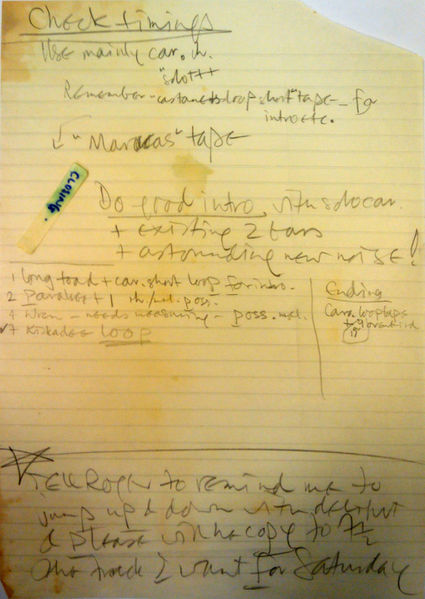 Check timings
Use mainly car. th.
"slott
Remember - castanets loop short" tape - for
intro etc.
"Maracas" tape
CLOSING
Do good intro, with solo car.
+ existing 2 bars
+ astounding new noise!
1 long toad + car. short loop for intro.
2 Parakeet 1 th./mel. poss.
4 Wren - needs measuring - poss. mel.
7 Kiskadee loop
Ending
Cara. loop tape
to
19
Tell Roger to remind me to
jump up & down with
& please will he copy to 7½
the track I want for Saturday